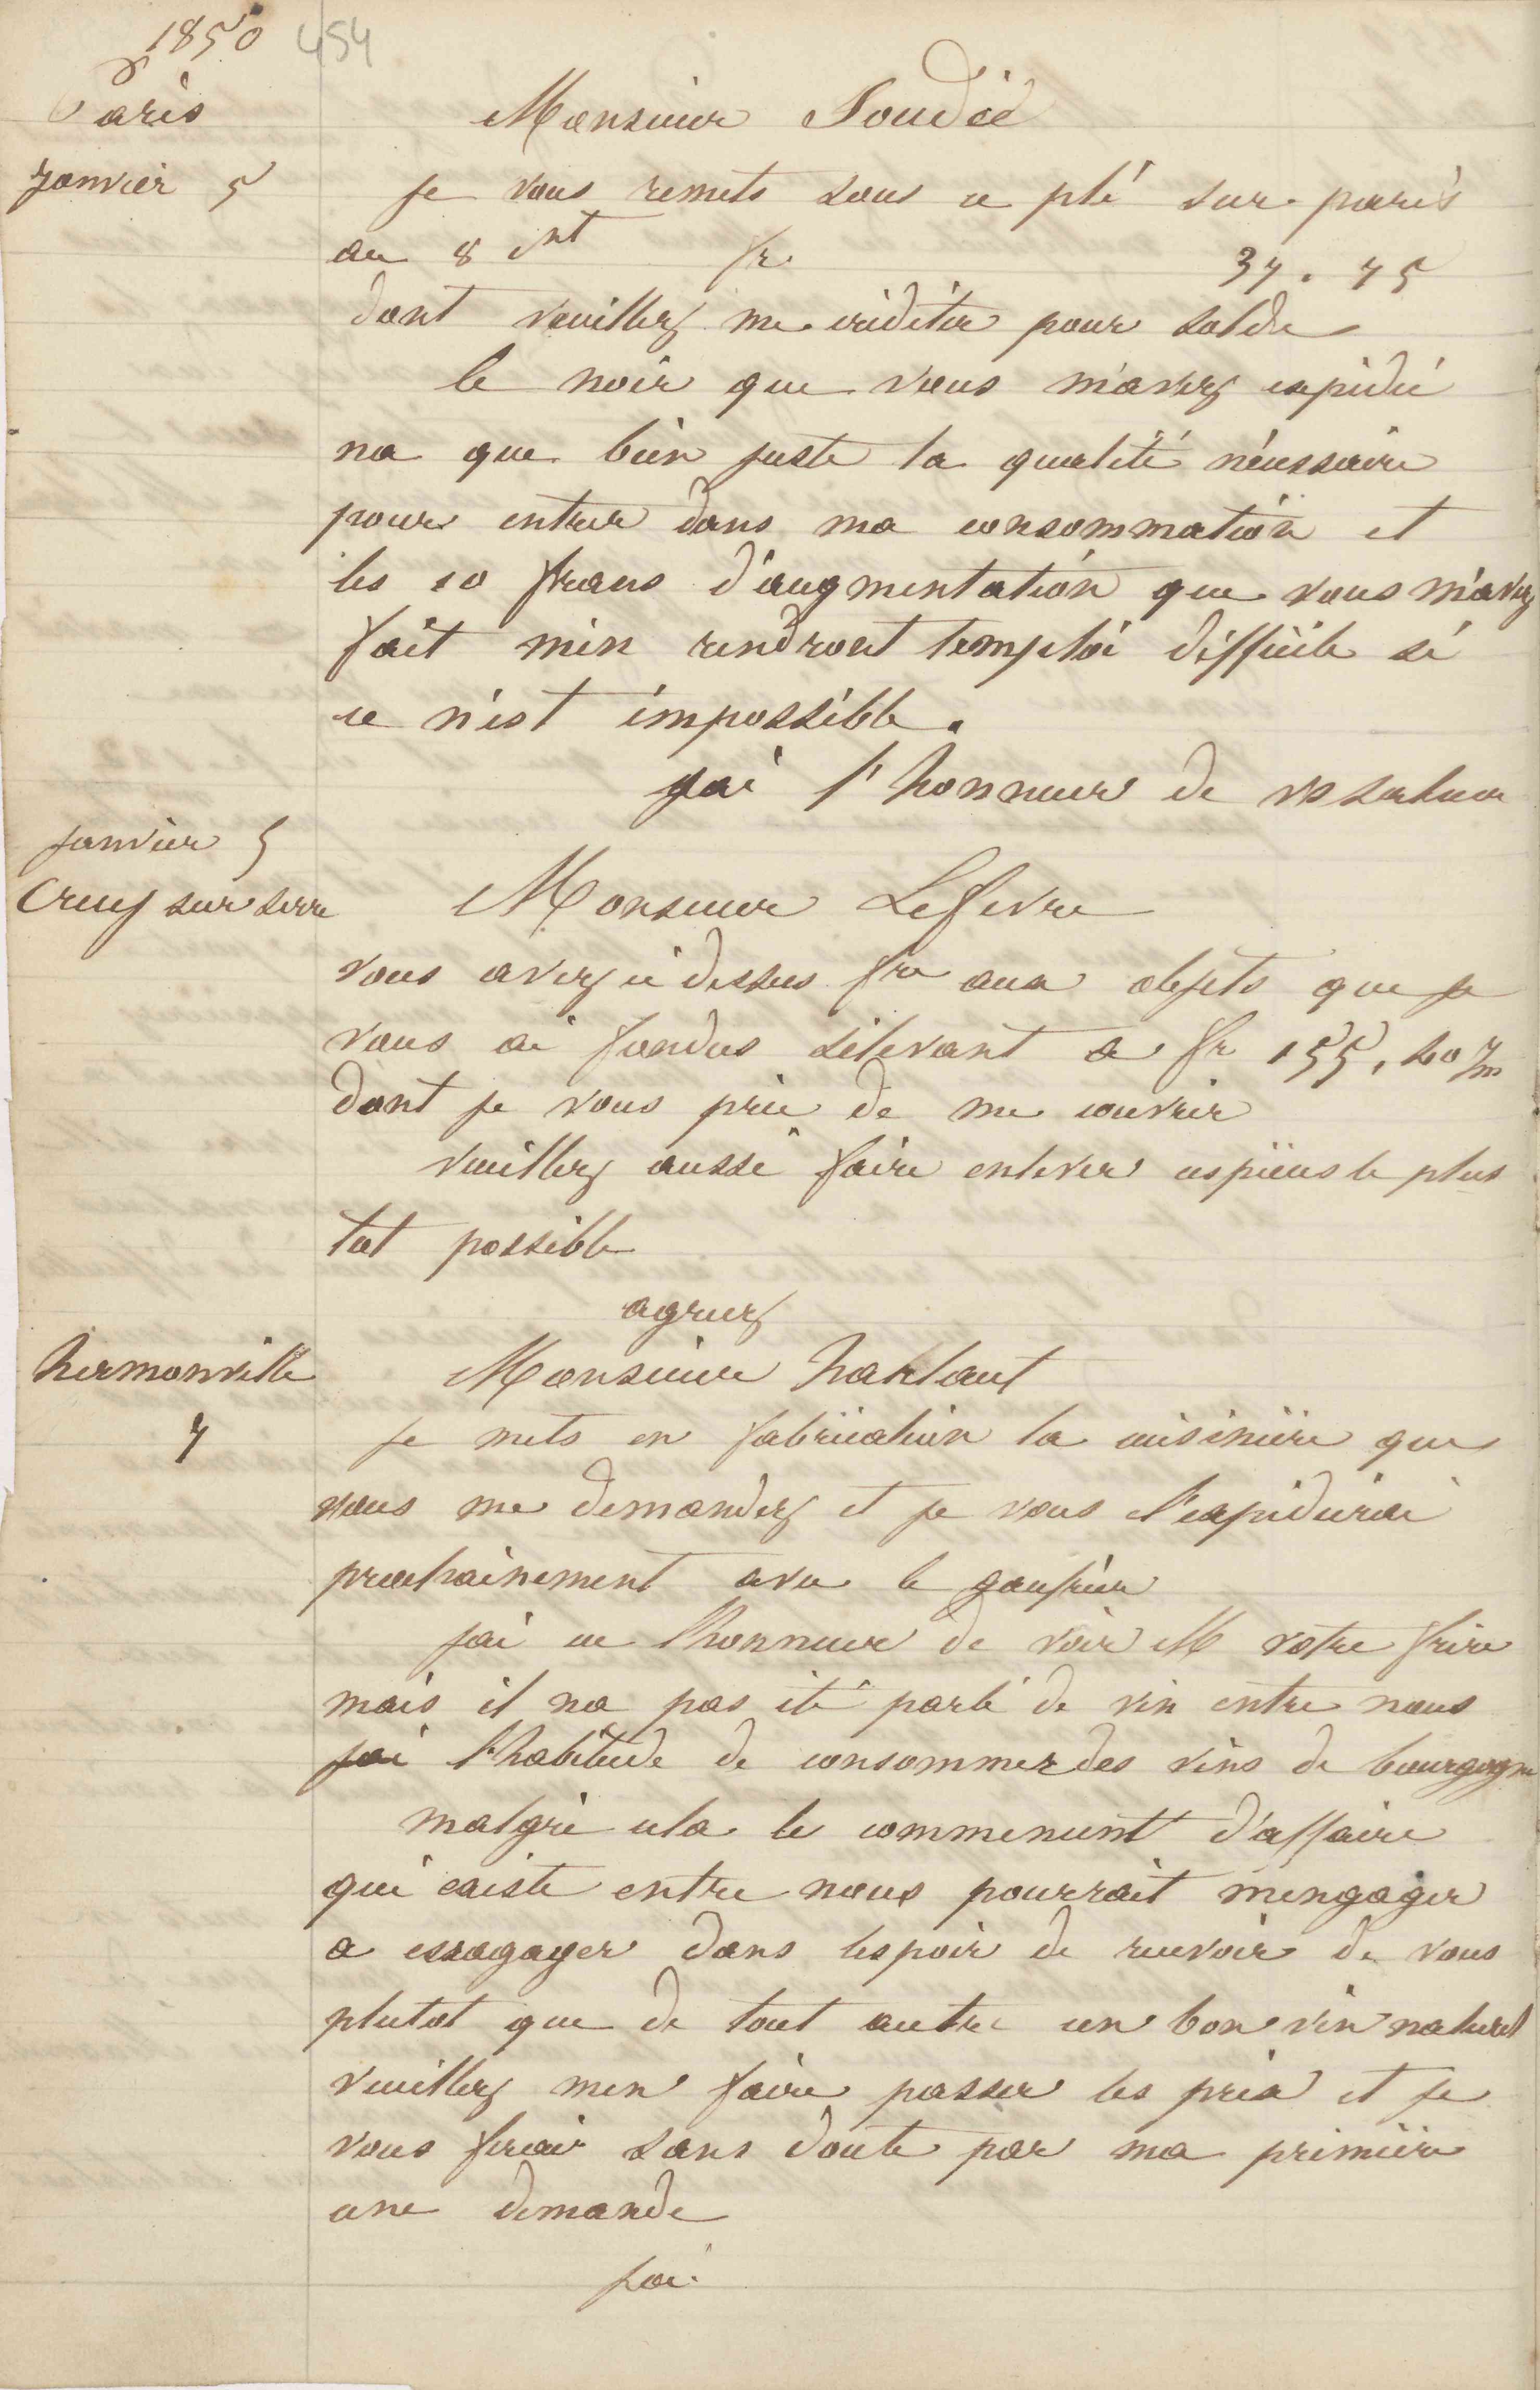 1850 454
Paris
Monsieur Soudée
Janvier 5
Je vous remets sous ce pli sur paris
au 8 cnt fr 37. 75
dont veuillez me créditer pour solde
le noir que vous m'avez expédié
na que bien juste la qualité nécessaire
pour entrer dans ma consommation et
les 10 francs d'augmentation que vous m'avez
fait m'en rendront lemploi difficile si
ce n'est impossible.
jai l'honneur de vs saluer
janvier 5
Crecy sur serre
Monsieur Lefevre
vous avez ci dessus fre aux objets que je
vous ai fondus s'élevant a fr 155, 20
dont je vous prie de me couvrir
veuillez aussi faire enlever ces pièces le plus
tot possible
agreez
hermonville
Monsieur
7
je mets en fabrication la cuisinière que
vous me demandez et je vous l'expédierai
prochainement avec le gaufrier
jai eu lhonneur de voir M votre frère
mais il na pas été parlé de vin entre nous
jai lhabitude de consommer des vins de bourgogne
malgré cela le commencemt d'affaire
qui existe entre nous pourrait m'engager
a essagayer dans lespoir de recevoir de vous
plutot que de tout autre un bon vin naturel
veuillez men faire passer les prix et je
vous ferai sans doute par ma première
une demande
jai